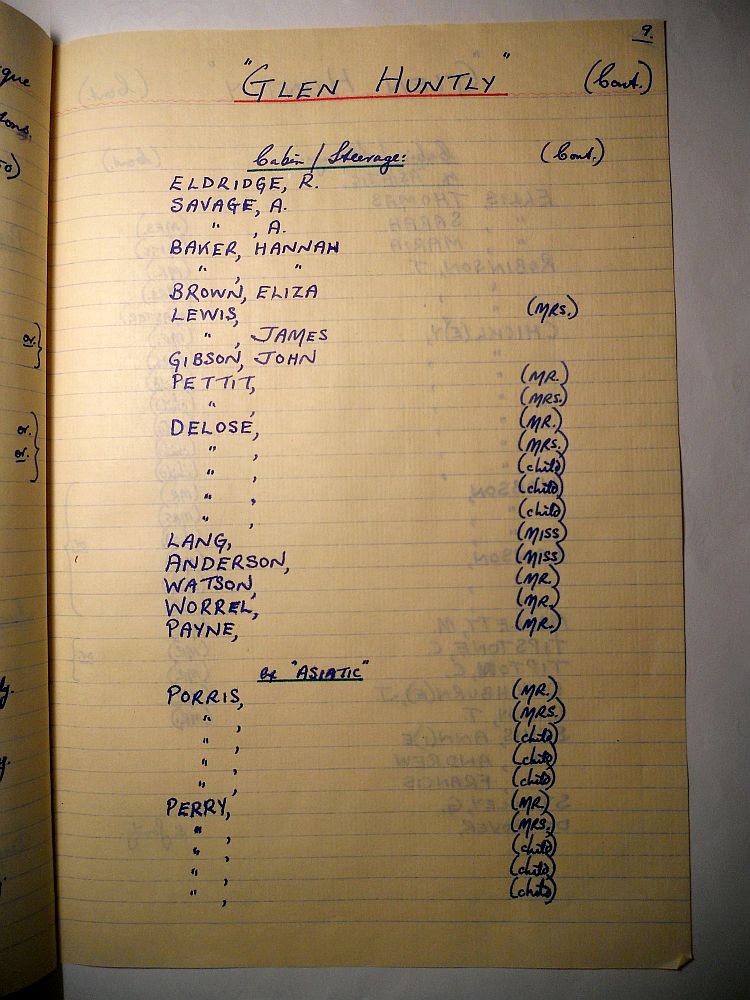 9.
"GLEN HUNTLY" (Cont.)
Cabin / Steerage: (Cont.)
ELDRIDGE, R.
SAVAGE, A.
" , A.
BAKER, HANNAH
" , "
BROWN, ELIZA
LEWIS, (MRS.)
" , JAMES
GIBSON, JOHN
PETTIT, (MR.)
" , (MRS.)
DELOSE, (MR.)
" , (MRS.)
" , (child)
" , (child)
" , (child)
LANG, (MISS)
ANDERSON, (MISS)
WATSON, (MR.)
WORREL, (MR.)
PAYNE, (MR.)
ex "ASIATIC"
PORRIS, (MR.)
" , (MRS.)
" , (child)
" , (child)
" , (child)
PERRY, (MR.)
" , (MRS.)
" , (child)
" , (child)
" , (child)
or. }
or.
or. }